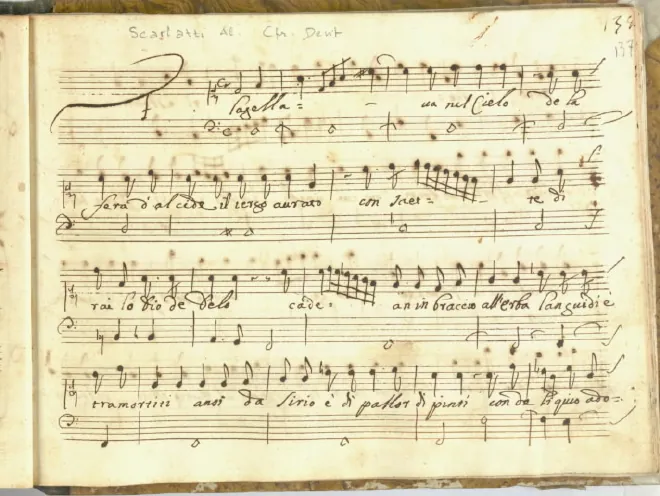 Scarlatti Al. Cfr. Dent
138
137
Flagella= - ua nel Cielo de la
fera d'Alcide il tergo aurato con saet= - te di
rai lo Dio de Delo cade= an in braccio all'erba languidi e
tramortiti arsi da Sirio e di pallor dipinti con da ado=